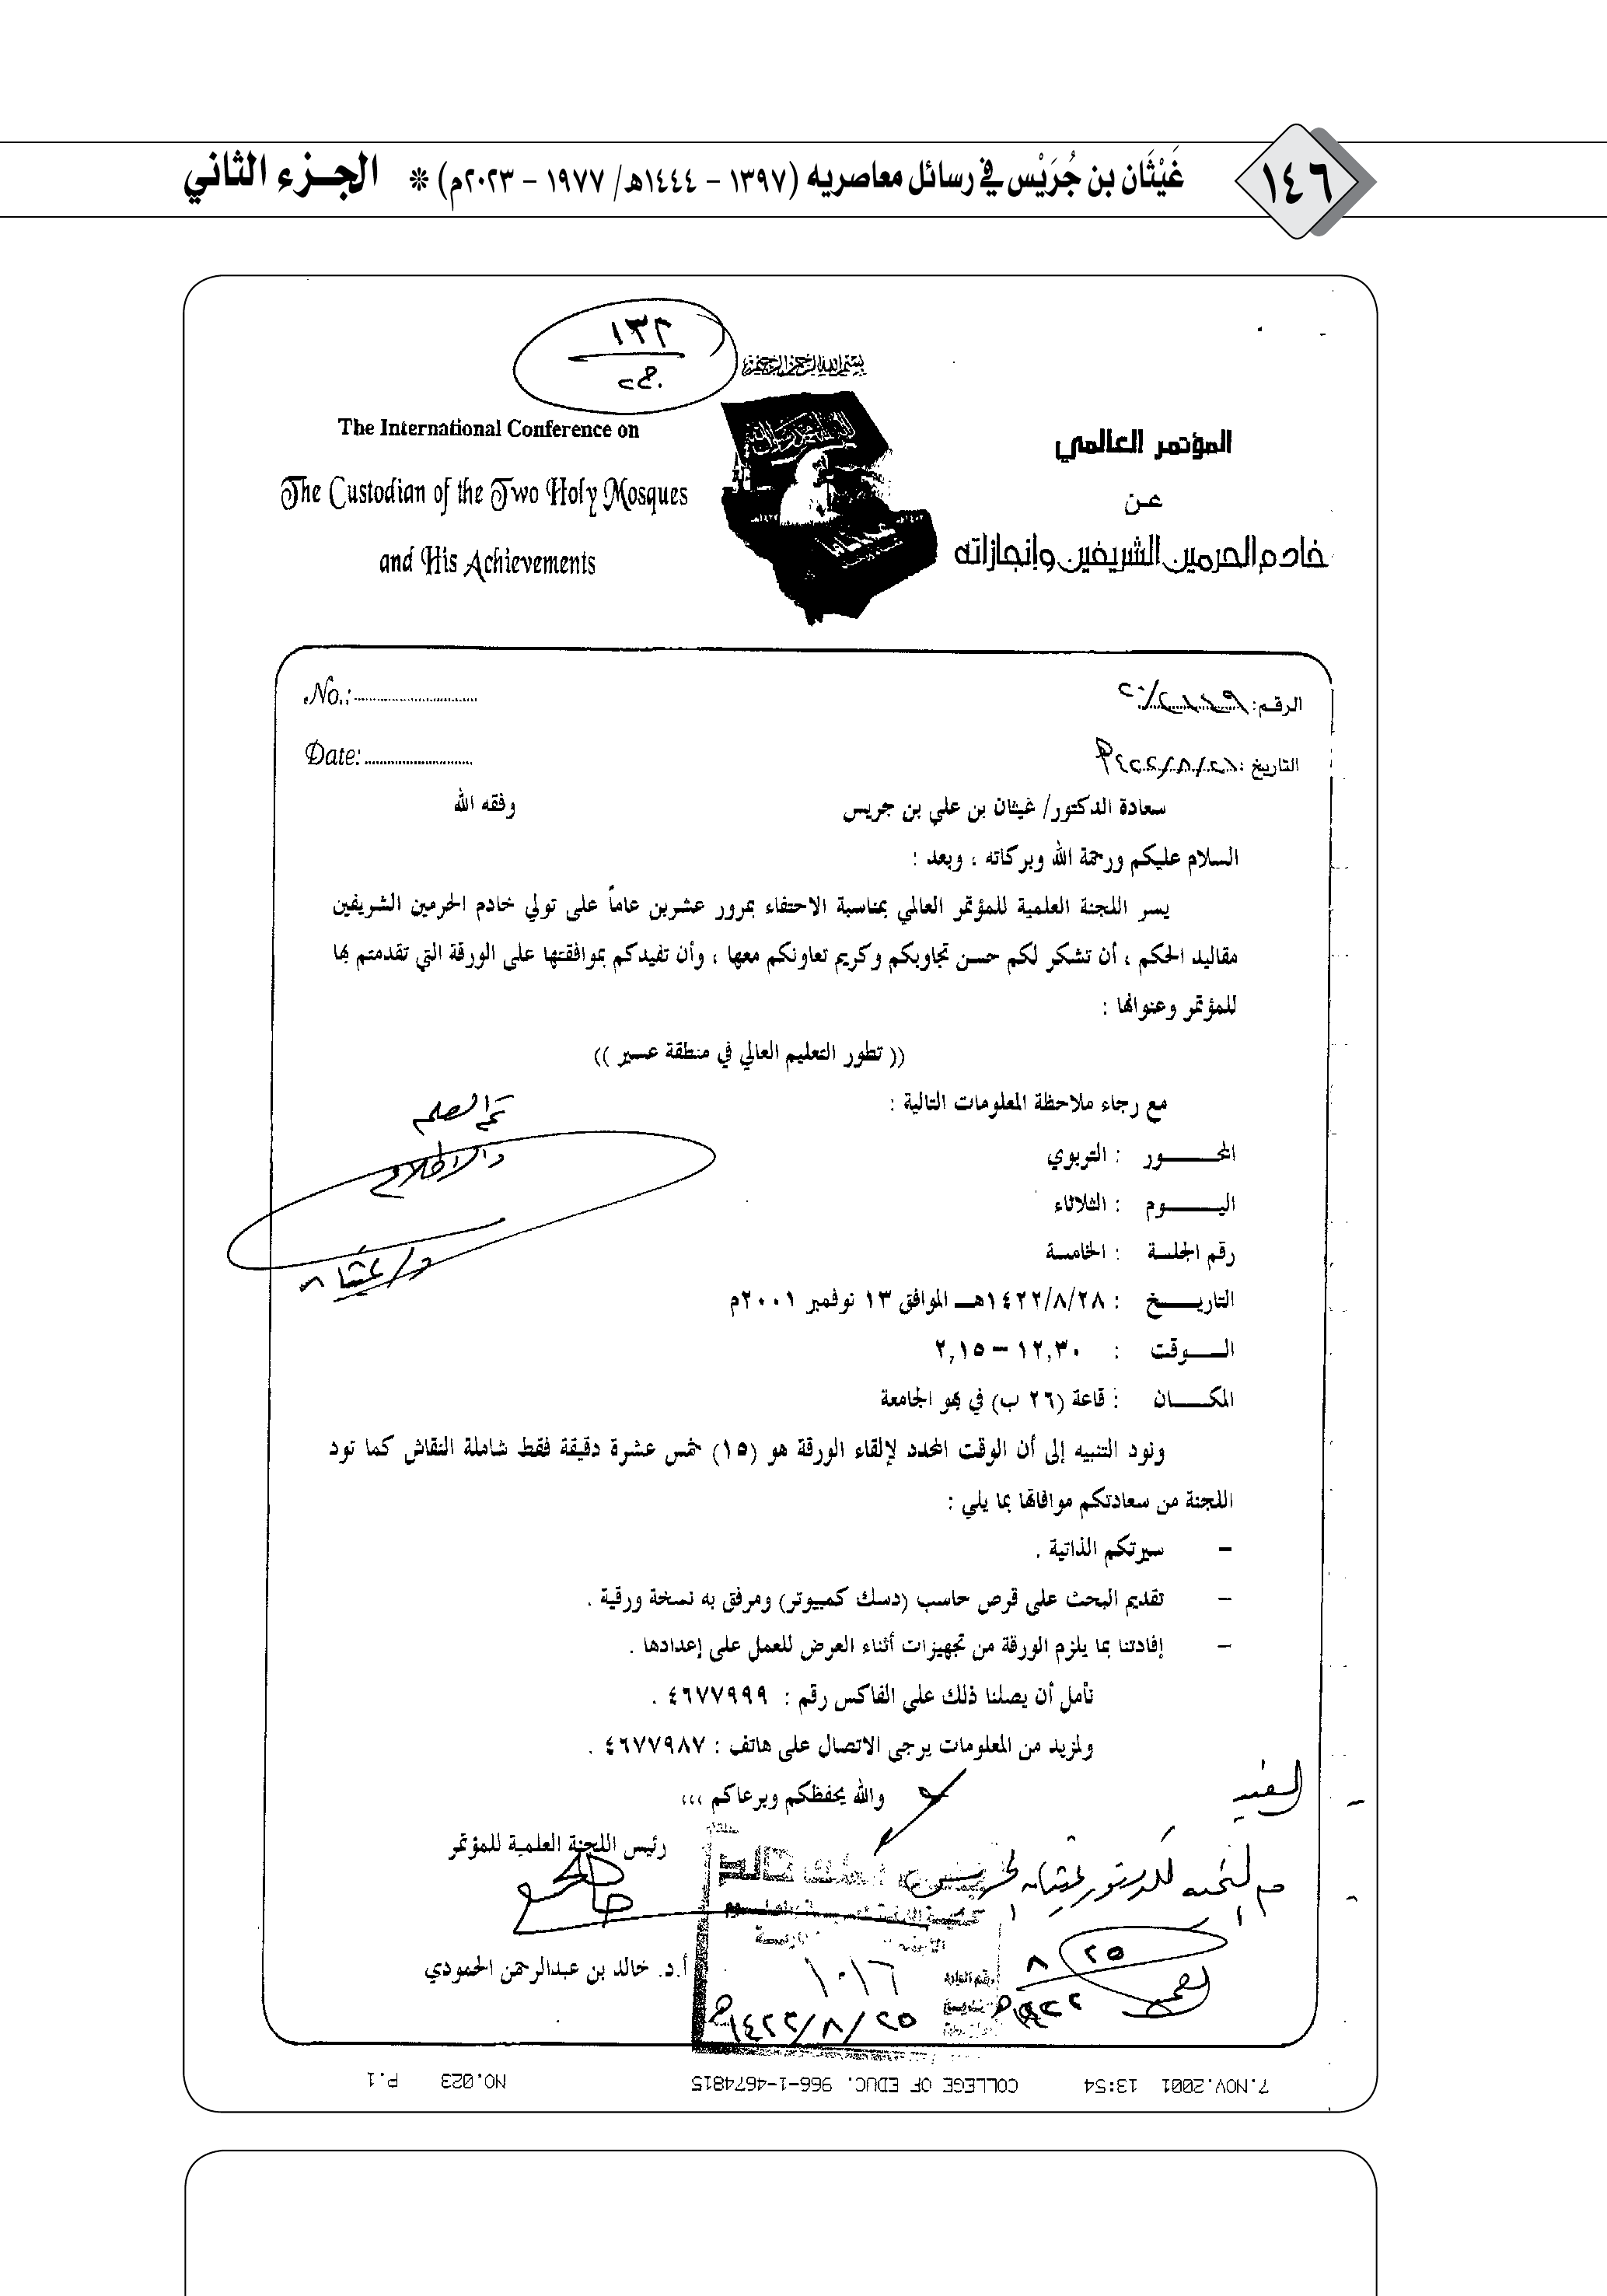 ١٤٦
غَيْثَان بن جُرَيْس في رسائل معاصريه (١٣٩٧ - ١٤٤٤هـ/ ١٩٧٧ - ٢٠٢٣م) * الجزء الثاني
١٣٢
بسم الله الرحمن الرحيم
المؤتمر العالمي
عن
خادم الحرمين الشريفين وإنجازاته
The International Conference on
The Custodian of the Two Holy Mosques
and His Achievements
الرقم:
No.:
التاريخ:
Date:
سعادة الدكتور/ غيثان بن علي بن جريس وفقه الله
السلام عليكم ورحمة الله وبركاته ، وبعد :
يسر اللجنة العلمية للمؤتمر العالمي بمناسبة الاحتفاء بمرور عشرين عاماً على تولي خادم الحرمين الشريفين
مقاليد الحكم ، أن تشكر لكم حسن تجاوبكم وكريم تعاونكم معها ، وأن تفيدكم بموافقتها على الورقة التي تقدمتم بها
للمؤتمر وعنوانها :
(( تطور التعليم العالي في منطقة عسير ))
مع رجاء ملاحظة المعلومات التالية :
المحـــور : التربوي
اليـــوم : الثلاثاء
رقم الجلسة : الخامسة
التاريـــخ : ١٤٢٢/٨/٢٨هـ الموافق ١٣ نوفمبر ٢٠٠١م
الـــوقت : ١٢,٣٠ – ٢,١٥
المكـــان : قاعة (٢٦ ب) في بهو الجامعة
ونود التنبيه إلى أن الوقت المحدد لإلقاء الورقة هو (١٥) خمس عشرة دقيقة فقط شاملة النقاش كما تود
اللجنة من سعادتكم موافاتها بما يلي :
– سيرتكم الذاتية .
– تقديم البحث على قرص حاسب (دسك كمبيوتر) ومرفق به نسخة ورقية .
– إفادتنا بما يلزم الورقة من تجهيزات أثناء العرض للعمل على إعدادها .
نأمل أن يصلنا ذلك على الفاكس رقم : ٤٦٧٧٩٩٩ .
ولمزيد من المعلومات يرجى الاتصال على هاتف : ٤٦٧٧٩٨٧ .
والله يحفظكم ويرعاكم ،،،
رئيس اللجنة العلمية للمؤتمر
أ.د. خالد بن عبدالرحمن الحمودي
تم العلم
والاطلاع
د/ غيثان
١٠١٦
١٤٢٢/٨/٢٥هـ
7.NOV.2001 13:54 COLLEGE OF EDUC. 966-1-4674815 NO.023 P.1